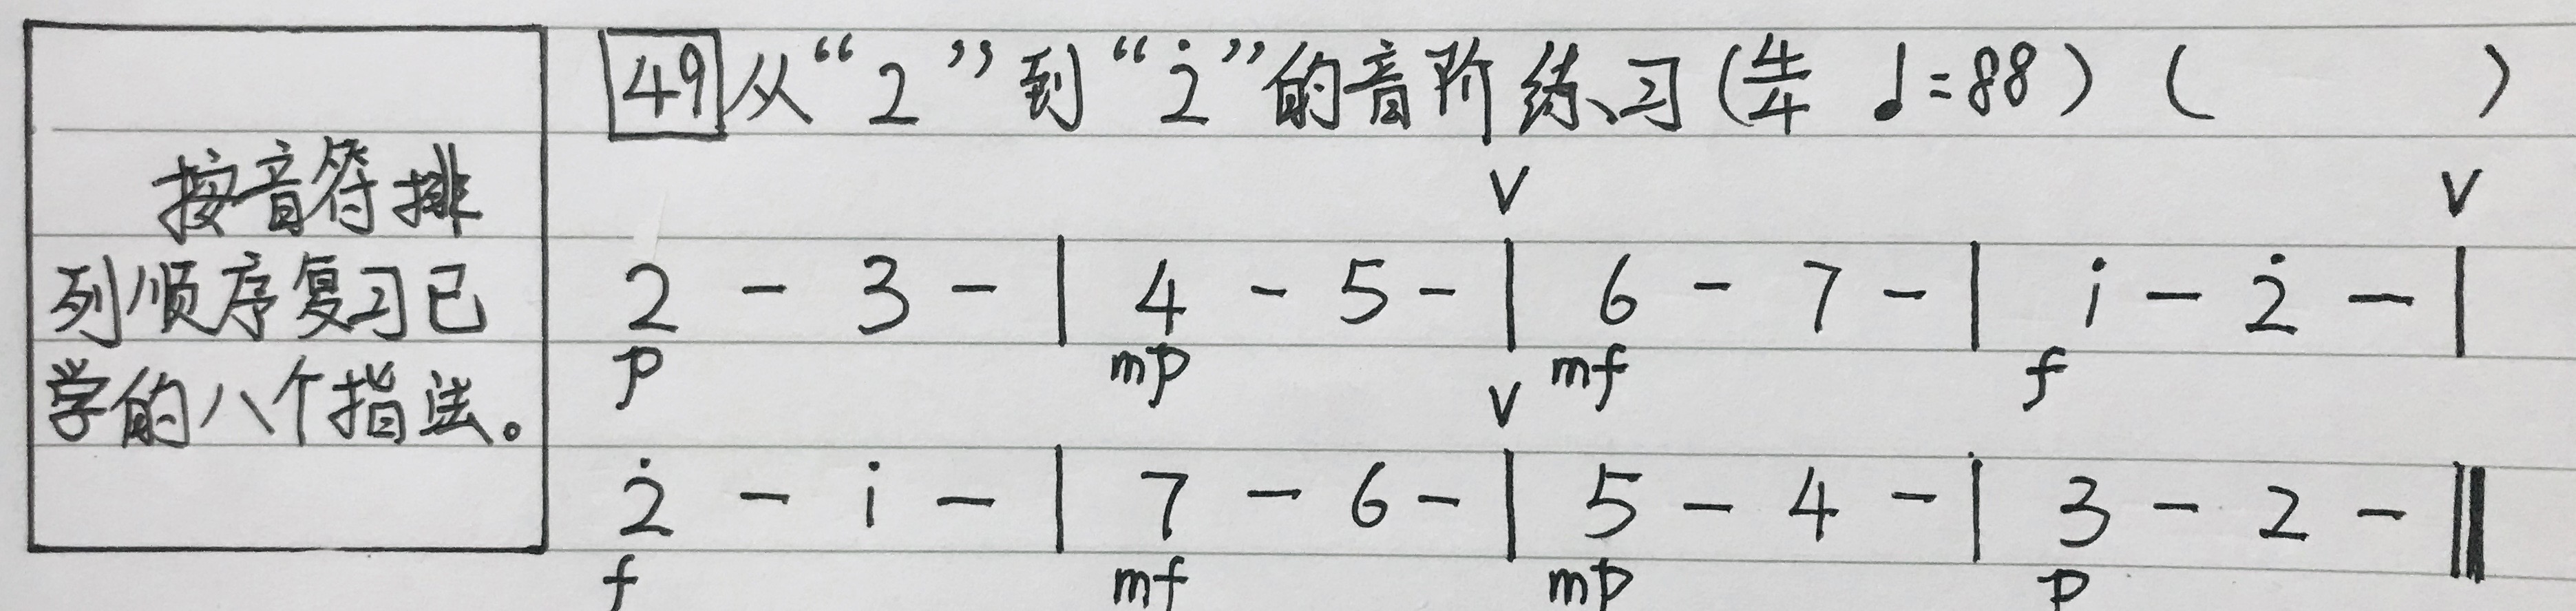 按音符排
列顺序复习已
学的八个指法。
49 从“2”到“2̇”的音阶练习(4/4 ♩=88) (      )
V V
2 - 3 - | 4 - 5 - | 6 - 7 - | 1̇ - 2̇ - |
p mp mf f
V
2̇ - 1̇ - | 7 - 6 - | 5 - 4 - | 3 - 2 - ‖
f mf mp p